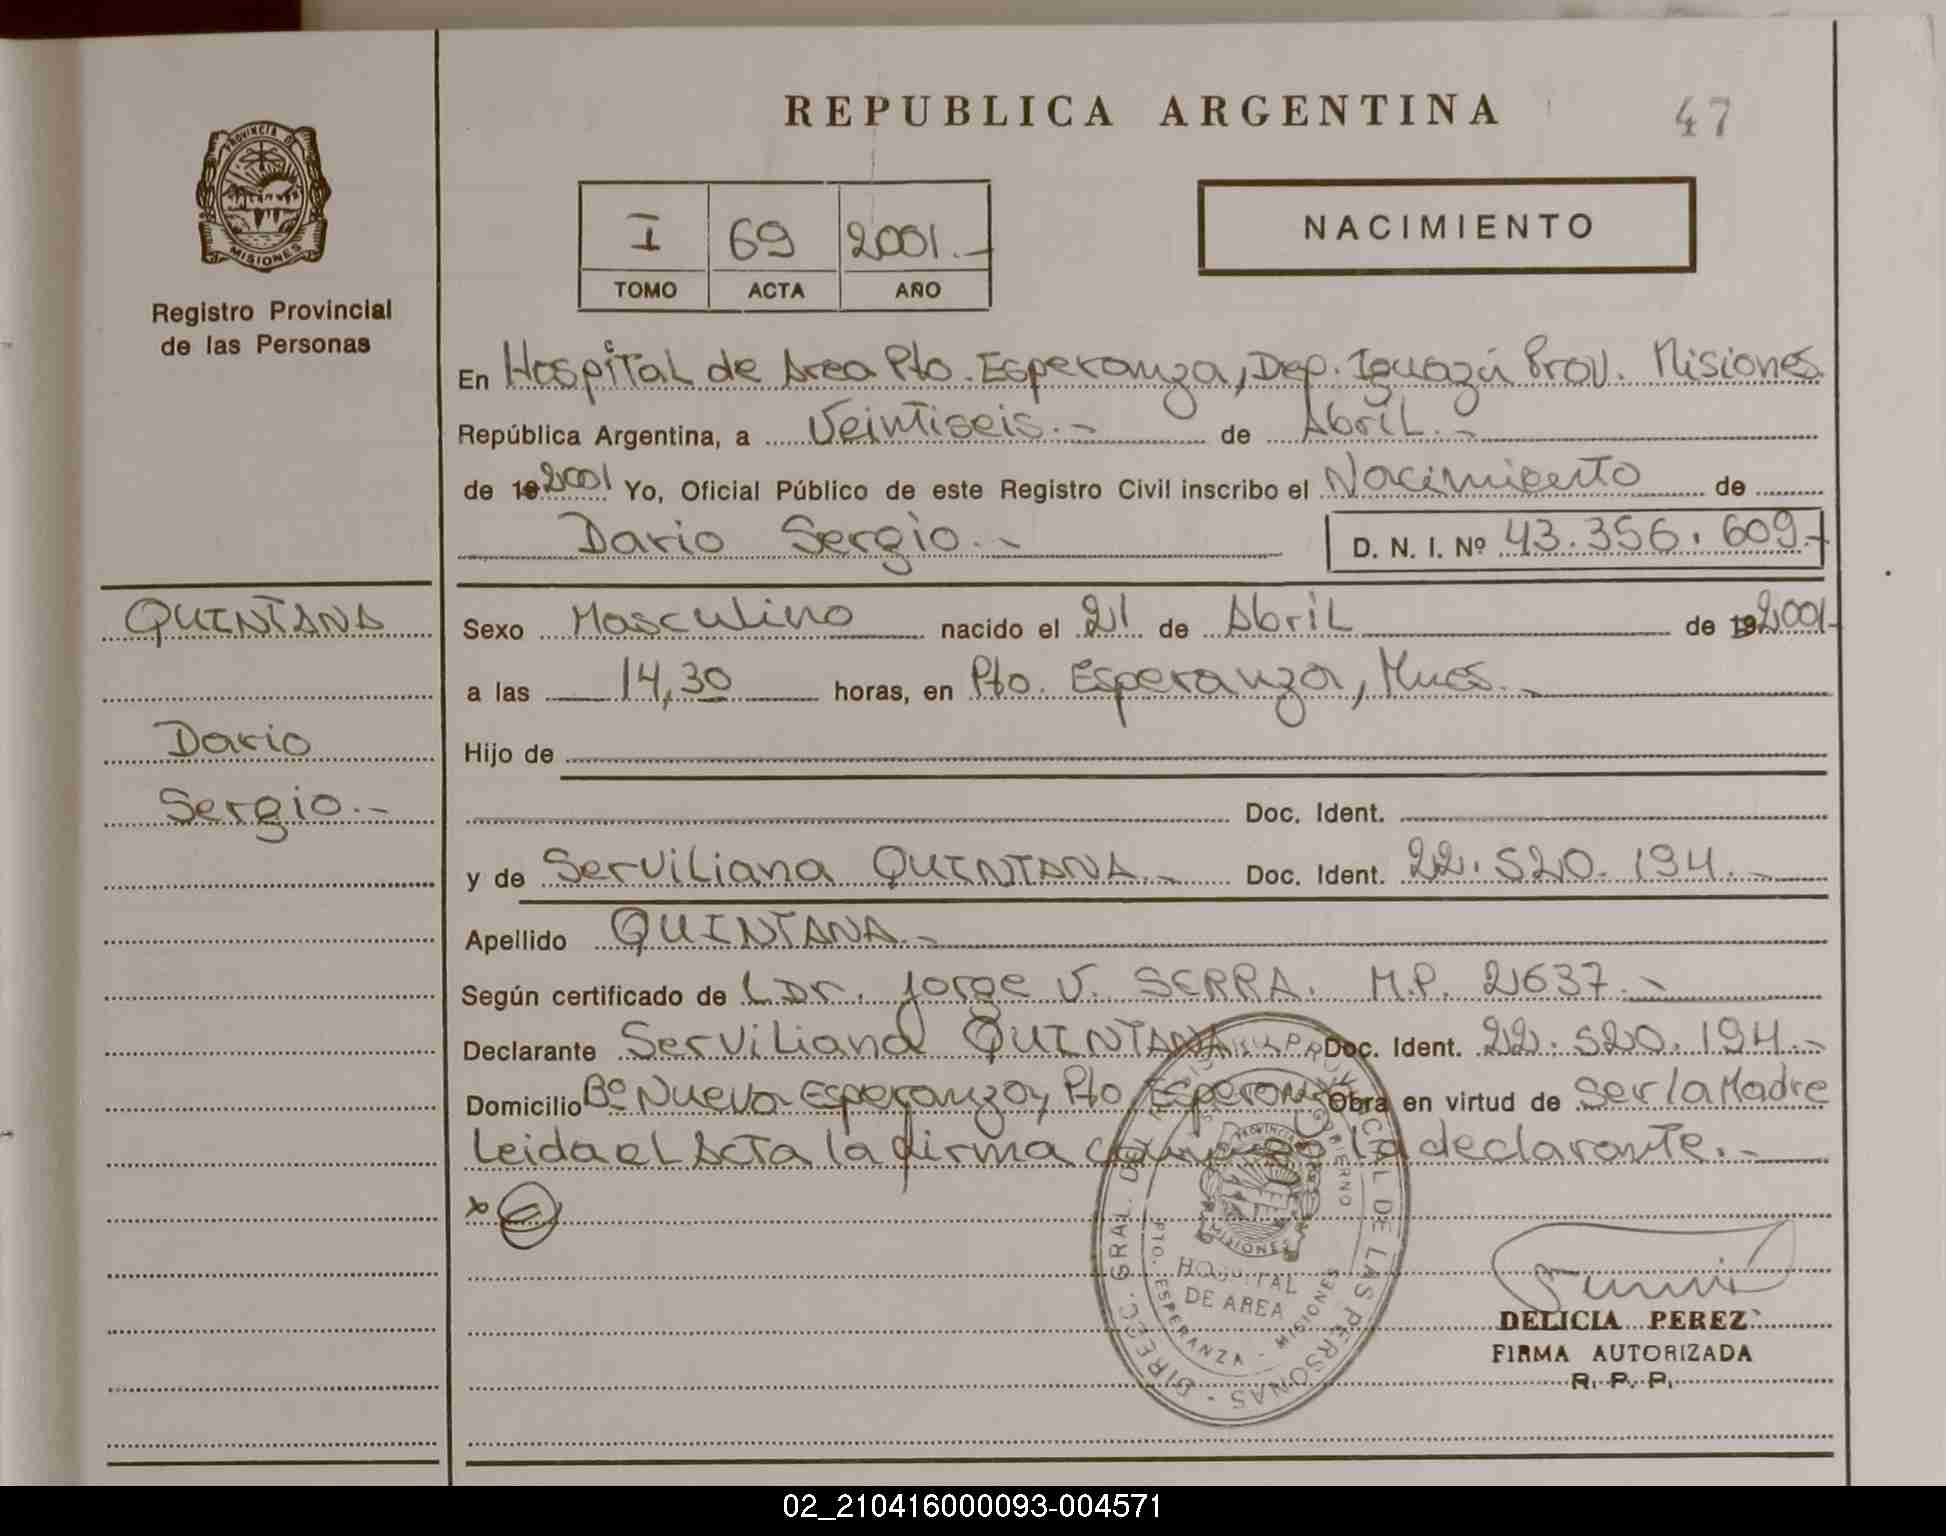 REPUBLICA ARGENTINA
47
PROVINCIA DE
MISIONES
Registro Provincial
de las Personas
I 69 2001.-
TOMO ACTA AÑO
NACIMIENTO
En Hospital de Area Pto. Esperanza, Dep. Iguazú Prov. Misiones
República Argentina, a Veintiseis.- de Abril.-
de 19 2001 Yo, Oficial Público de este Registro Civil inscribo el Nacimiento de
Dario Sergio.- D. N. I. Nº 43.356.609.-
QUINTANA
Dario
Sergio.-
Sexo Masculino nacido el 21 de Abril de 19 2001-
a las 14,30 horas, en Pto. Esperanza, Mnes.-
Hijo de
Doc. Ident.
y de Serviliana QUINTANA.- Doc. Ident. 22.520.194.-
Apellido QUINTANA.-
Según certificado de L Dr. Jorge V. SERRA. M.P. 2637.-
Declarante Serviliana QUINTANA Doc. Ident. 22.520.194.-
Domicilio Bº Nueva Esperanza, Pto Esperanza Obra en virtud de Ser la Madre
Leida el Acta la firma conmigo la declarante.-
DIRECC. GRAL. DEL REGISTRO PROVINCIAL DE LAS PERSONAS
GOBIERNO
PROVINCIA
MISIONES
HOSPITAL
DE AREA
PTO. ESPERANZA - MISIONES
DELICIA PEREZ
FIRMA AUTORIZADA
R. P. P.
02_210416000093-004571